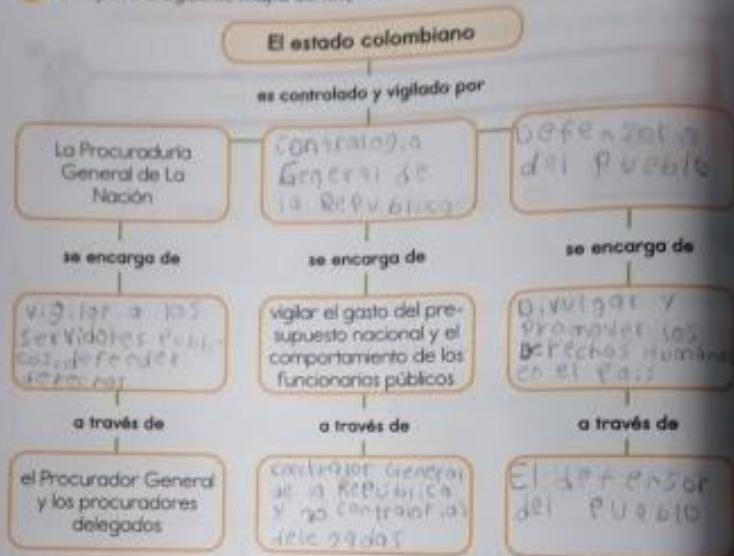 El estado colombiano
es controlado y vigilado por
La Procuraduría
General de La
Nación
Contraloria
General de
la Republica
Defensoria
del Pueblo
se encarga de
se encarga de
se encarga de
vigilar a los
servidores publi
cos, defender
derechos
vigilar el gasto del pre-
supuesto nacional y el
comportamiento de los
funcionarios públicos
Divulgar y
promover los
Derechos Humanos
en el Pais
a través de
a través de
a través de
el Procurador General
y los procuradores
delegados
contralor General
de la Republica
y contralorias
delegadas
El defensor
del Pueblo